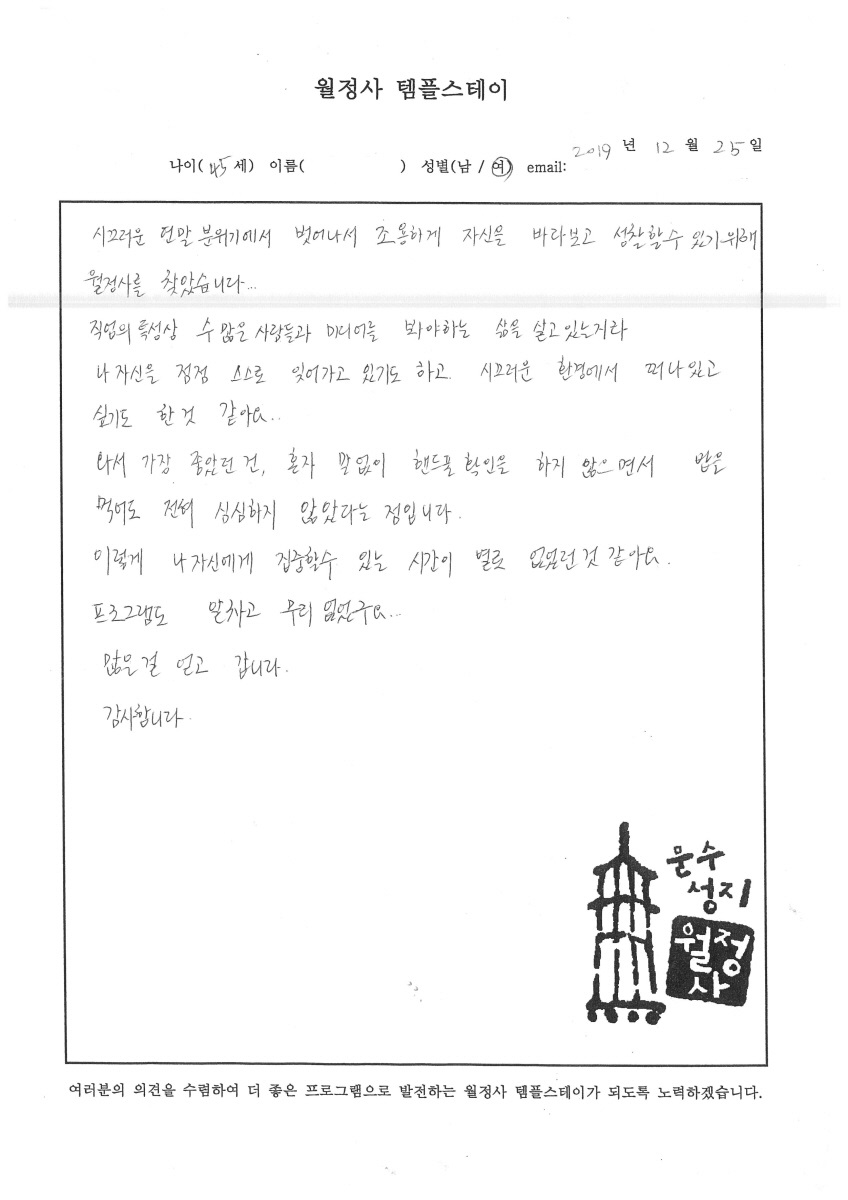 월정사 템플스테이
2019 년 12 월 25 일
나이( 45 세) 이름( ) 성별(남 / 여) email:
시끄러운 연말 분위기에서 벗어나서 조용하게 자신을 바라보고 성찰할수 있기위해
월정사를 찾았습니다...
직업의 특성상 수 많은 사람들과 미디어를 봐야하는 삶을 살고있는거라
나 자신을 점점 스스로 잊어가고 있기도 하고. 시끄러운 환경에서 떠나있고
싶기도 한것 같아요..
와서 가장 좋았던 건, 혼자 말없이 핸드폰 확인을 하지 않으면서 밥을
먹어도 전혀 심심하지 않았다는 점입니다.
이렇게 나 자신에게 집중할수 있는 시간이 별로 없었던것 같아요.
프로그램도 알차고 무리 없었구요...
많은걸 얻고 갑니다.
감사합니다.
문수
성지
월정
사
여러분의 의견을 수렴하여 더 좋은 프로그램으로 발전하는 월정사 템플스테이가 되도록 노력하겠습니다.